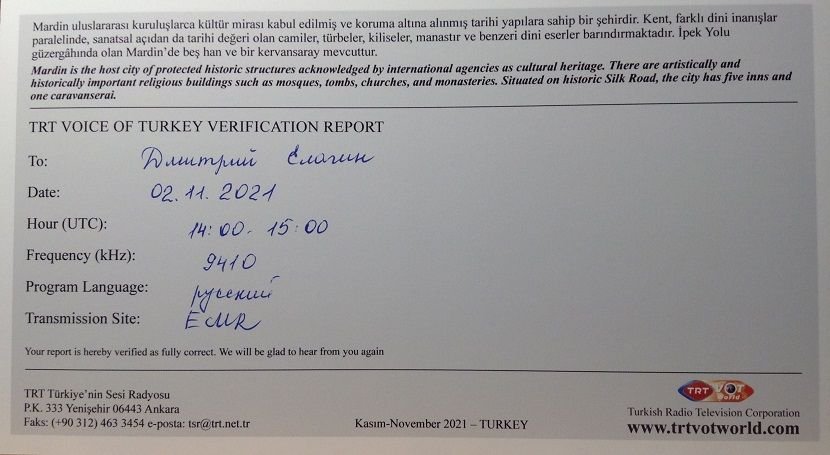 Mardin uluslararası kuruluşlarca kültür mirası kabul edilmiş ve koruma altına alınmış tarihi yapılara sahip bir şehirdir. Kent, farklı dini inanışlar
paralelinde, sanatsal açıdan da tarihi değeri olan camiler, türbeler, kiliseler, manastır ve benzeri dini eserler barındırmaktadır. İpek Yolu
güzergâhında olan Mardin'de beş han ve bir kervansaray mevcuttur.
Mardin is the host city of protected historic structures acknowledged by international agencies as cultural heritage. There are artistically and
historically important religious buildings such as mosques, tombs, churches, and monasteries. Situated on historic Silk Road, the city has five inns and
one caravanserai.
TRT VOICE OF TURKEY VERIFICATION REPORT
To: Дмитрий Елагин
Date: 02.11.2021
Hour (UTC): 14:00-15:00
Frequency (kHz): 9410
Program Language: русский
Transmission Site: EMR
Your report is hereby verified as fully correct. We will be glad to hear from you again
TRT Türkiye'nin Sesi Radyosu
P.K. 333 Yenişehir 06443 Ankara
Faks: (+90 312) 463 3454 e-posta: tsr@trt.net.tr
Kasım-November 2021 – TURKEY
TRT VOT World
Turkish Radio Television Corporation
www.trtvotworld.com